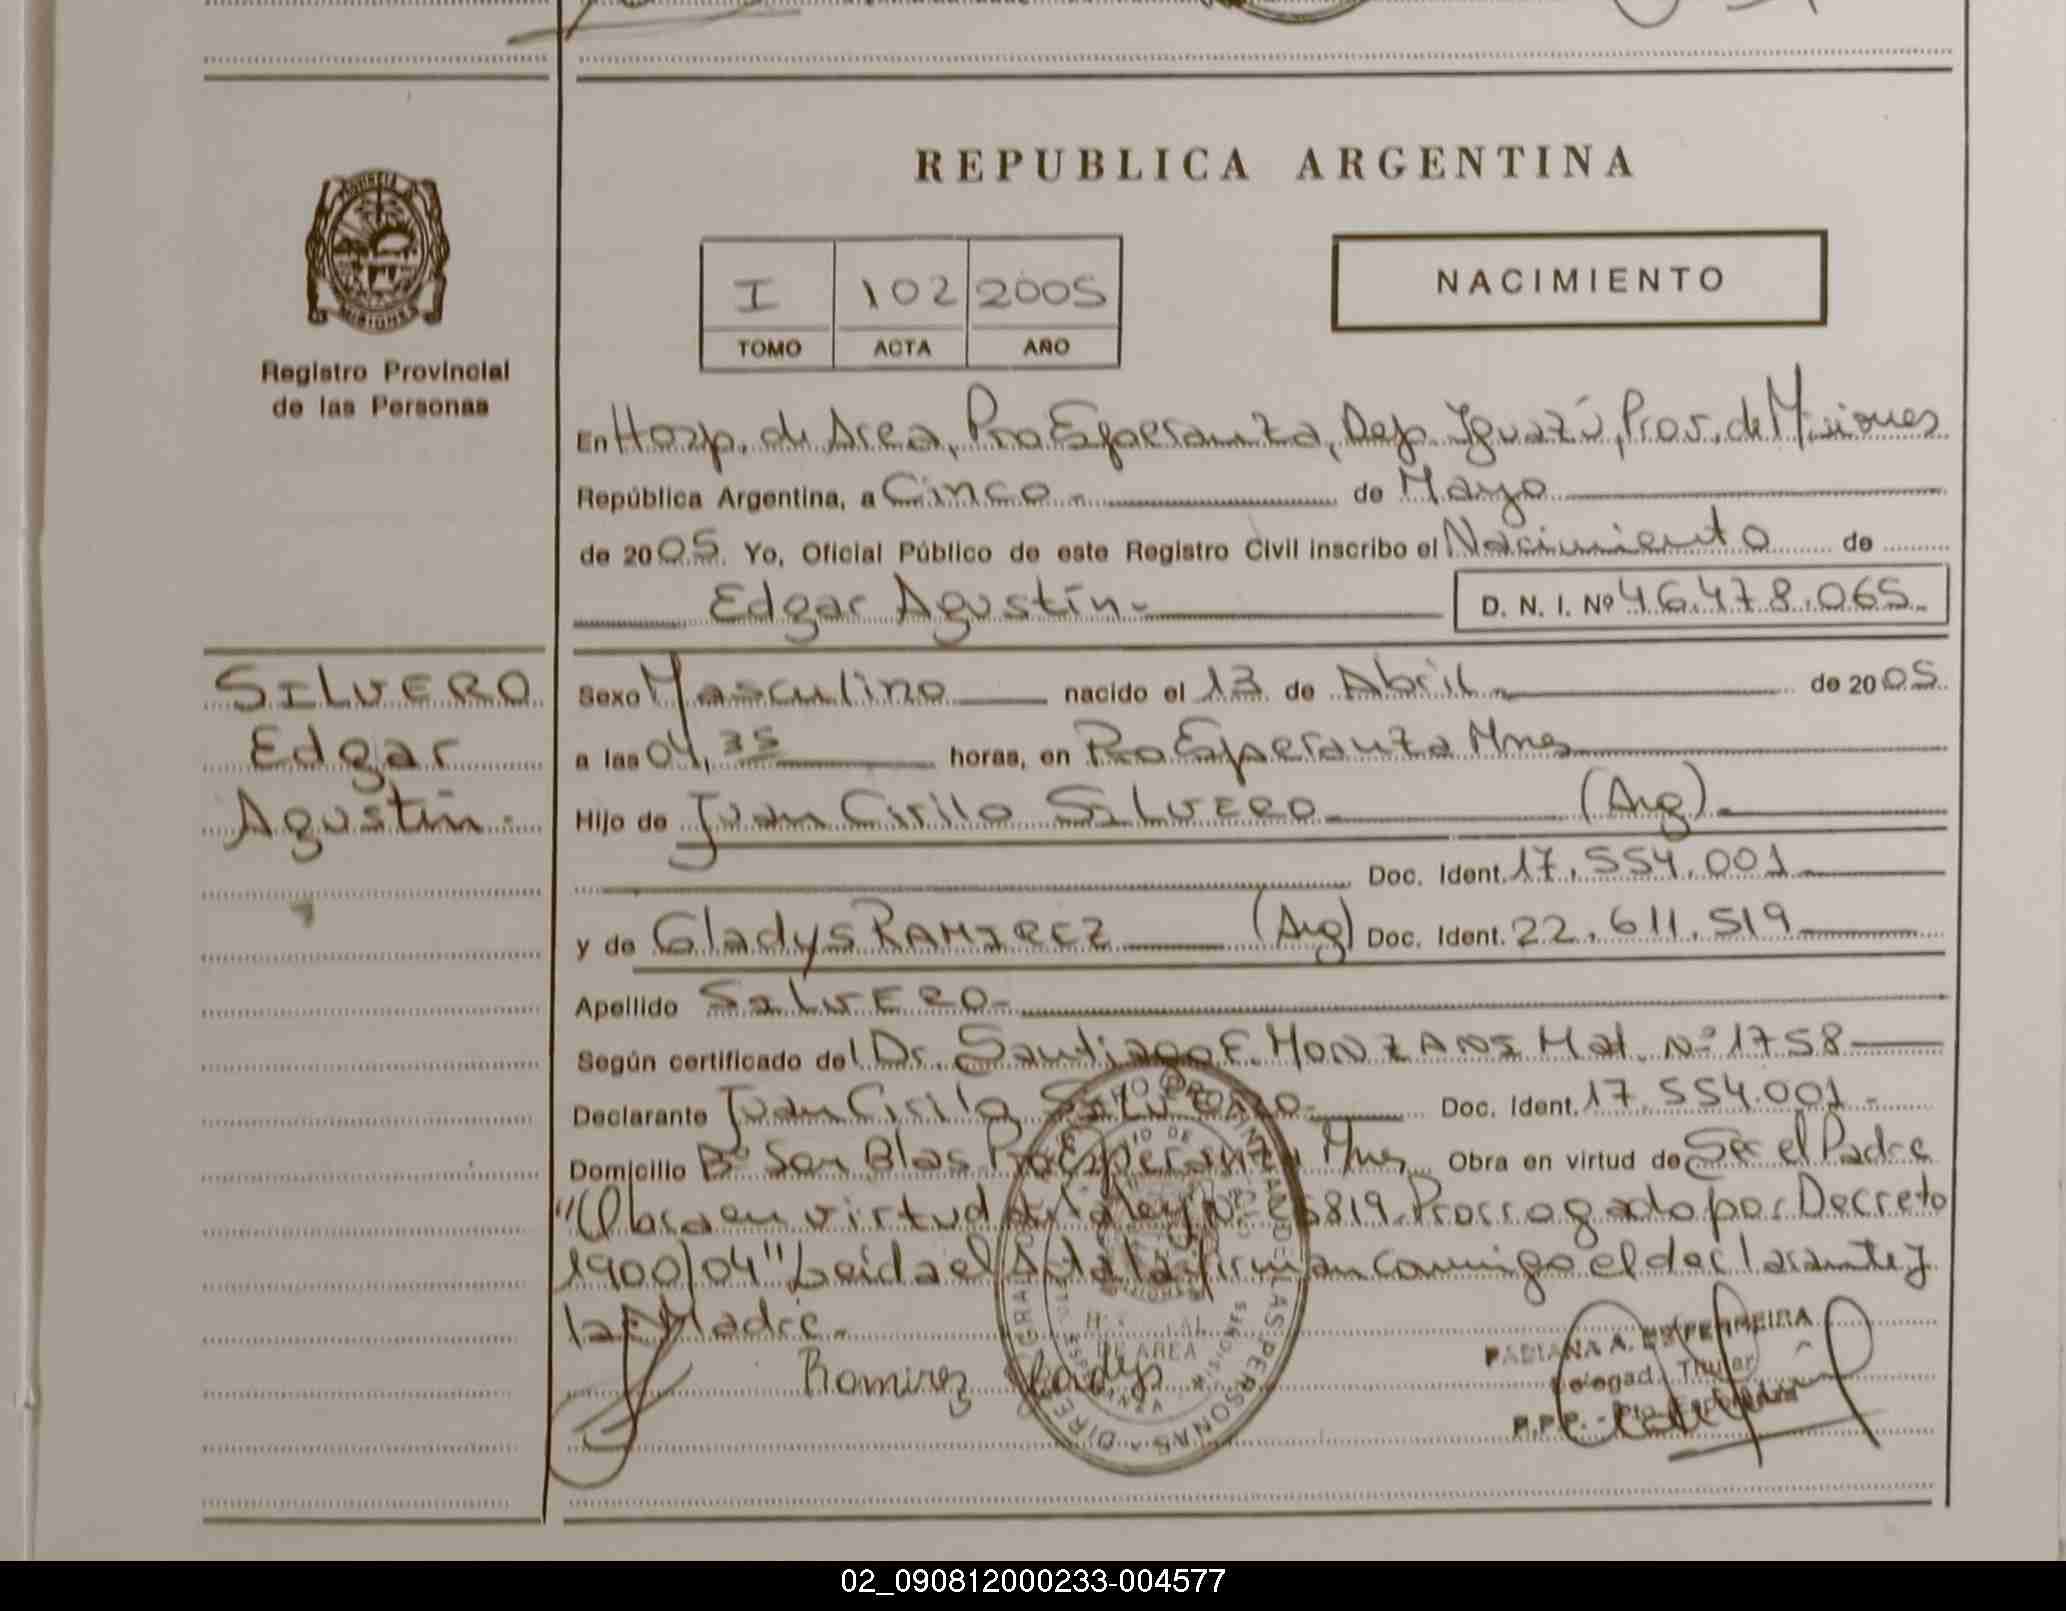 REPUBLICA ARGENTINA
PROVINCIA
MISIONES
Registro Provincial
de las Personas
I 102 2005
TOMO ACTA AÑO
NACIMIENTO
En Hosp. de Area, Pto Esperanza, Dep. Iguazú, Prov. de Misiones
República Argentina, a Cinco.- de Mayo
de 2005. Yo, Oficial Público de este Registro Civil inscribo el Nacimiento de
Edgar Agustín.- D. N. I. Nº 46.478.065.
SILVERO
Edgar
Agustín.-
Sexo Masculino nacido el 13 de Abril.- de 2005.
a las 04,35 horas, en Pto Esperanza Mnes
Hijo de Juan Cirilo SILVERO (Arg).
Doc. Ident. 17.554.001
y de Gladys RAMIREZ (Arg) Doc. Ident. 22.611.519
Apellido SILVERO.-
Según certificado del Dr. Santiago E. MONZANI Mat. Nº 1758
Declarante Juan Cirilo SILVERO.- Doc. Ident. 17.554.001.-
Domicilio Bº San Blas Pto Esperanza Mnes Obra en virtud de Ser el Padre
"Obra en virtud de la ley Nº 25819. Prorrogado por Decreto
1900/04" Leida el Acta la firman conmigo el declarante y
la Madre.-
Ramirez Gladys
DE AREA
FABIANA A. FERREIRA
Delegad. Titular
R.P.P. - Pto Esperanza
02_090812000233-004577